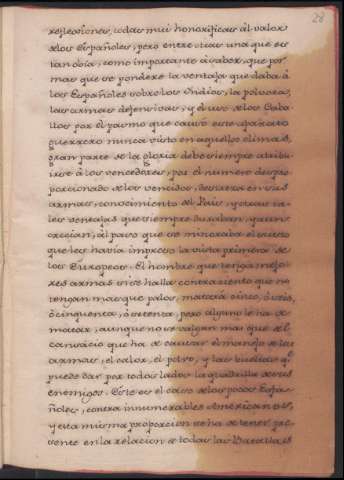 28
reflexiones, todas mui honorificas al valor
de los Españoles, pero entre otras una que es
tan obia, como importante à saber, que por
mas que se pondere la ventaja que daba à
los Españoles sobre los Yndios, la polvora,
las armas defensivas, y el uso de los Caba-
llos por el pasmo que causò este aparato
guerrero nunca visto en aquellos climas,
gran parte de la gloria debe siempre atribu-
irse à los vencedores, por el numero despro
porcionado de los vencidos, destreza en sus
armas, conocimiento del Pais, y otras ta-
les ventajas que siempre duraban, y aun
crecian, al paso que se minoraba el susto
que les havia impreso la vista primera de
los Europeos. El hombre que tenga mejo-
res armas si se halla contra ciento que no
tengan mas que palos, matarà cinco, ò seis,
ò cinquenta, ò setenta, pero alguno le ha de
matar, aunque no se valgan mas que del
cansacio que ha de causar el manejo de las
armas, el calor, el polvo, y las bueltas q.e
puede dar por todos lados la quadrilla de sus
enemigos. Este es el caso de los pocos Espa-
ñoles, contra innumerables Americanos,
y esta misma proporcion se ha de tener pre-
sente en la relacion de todas las Batallas